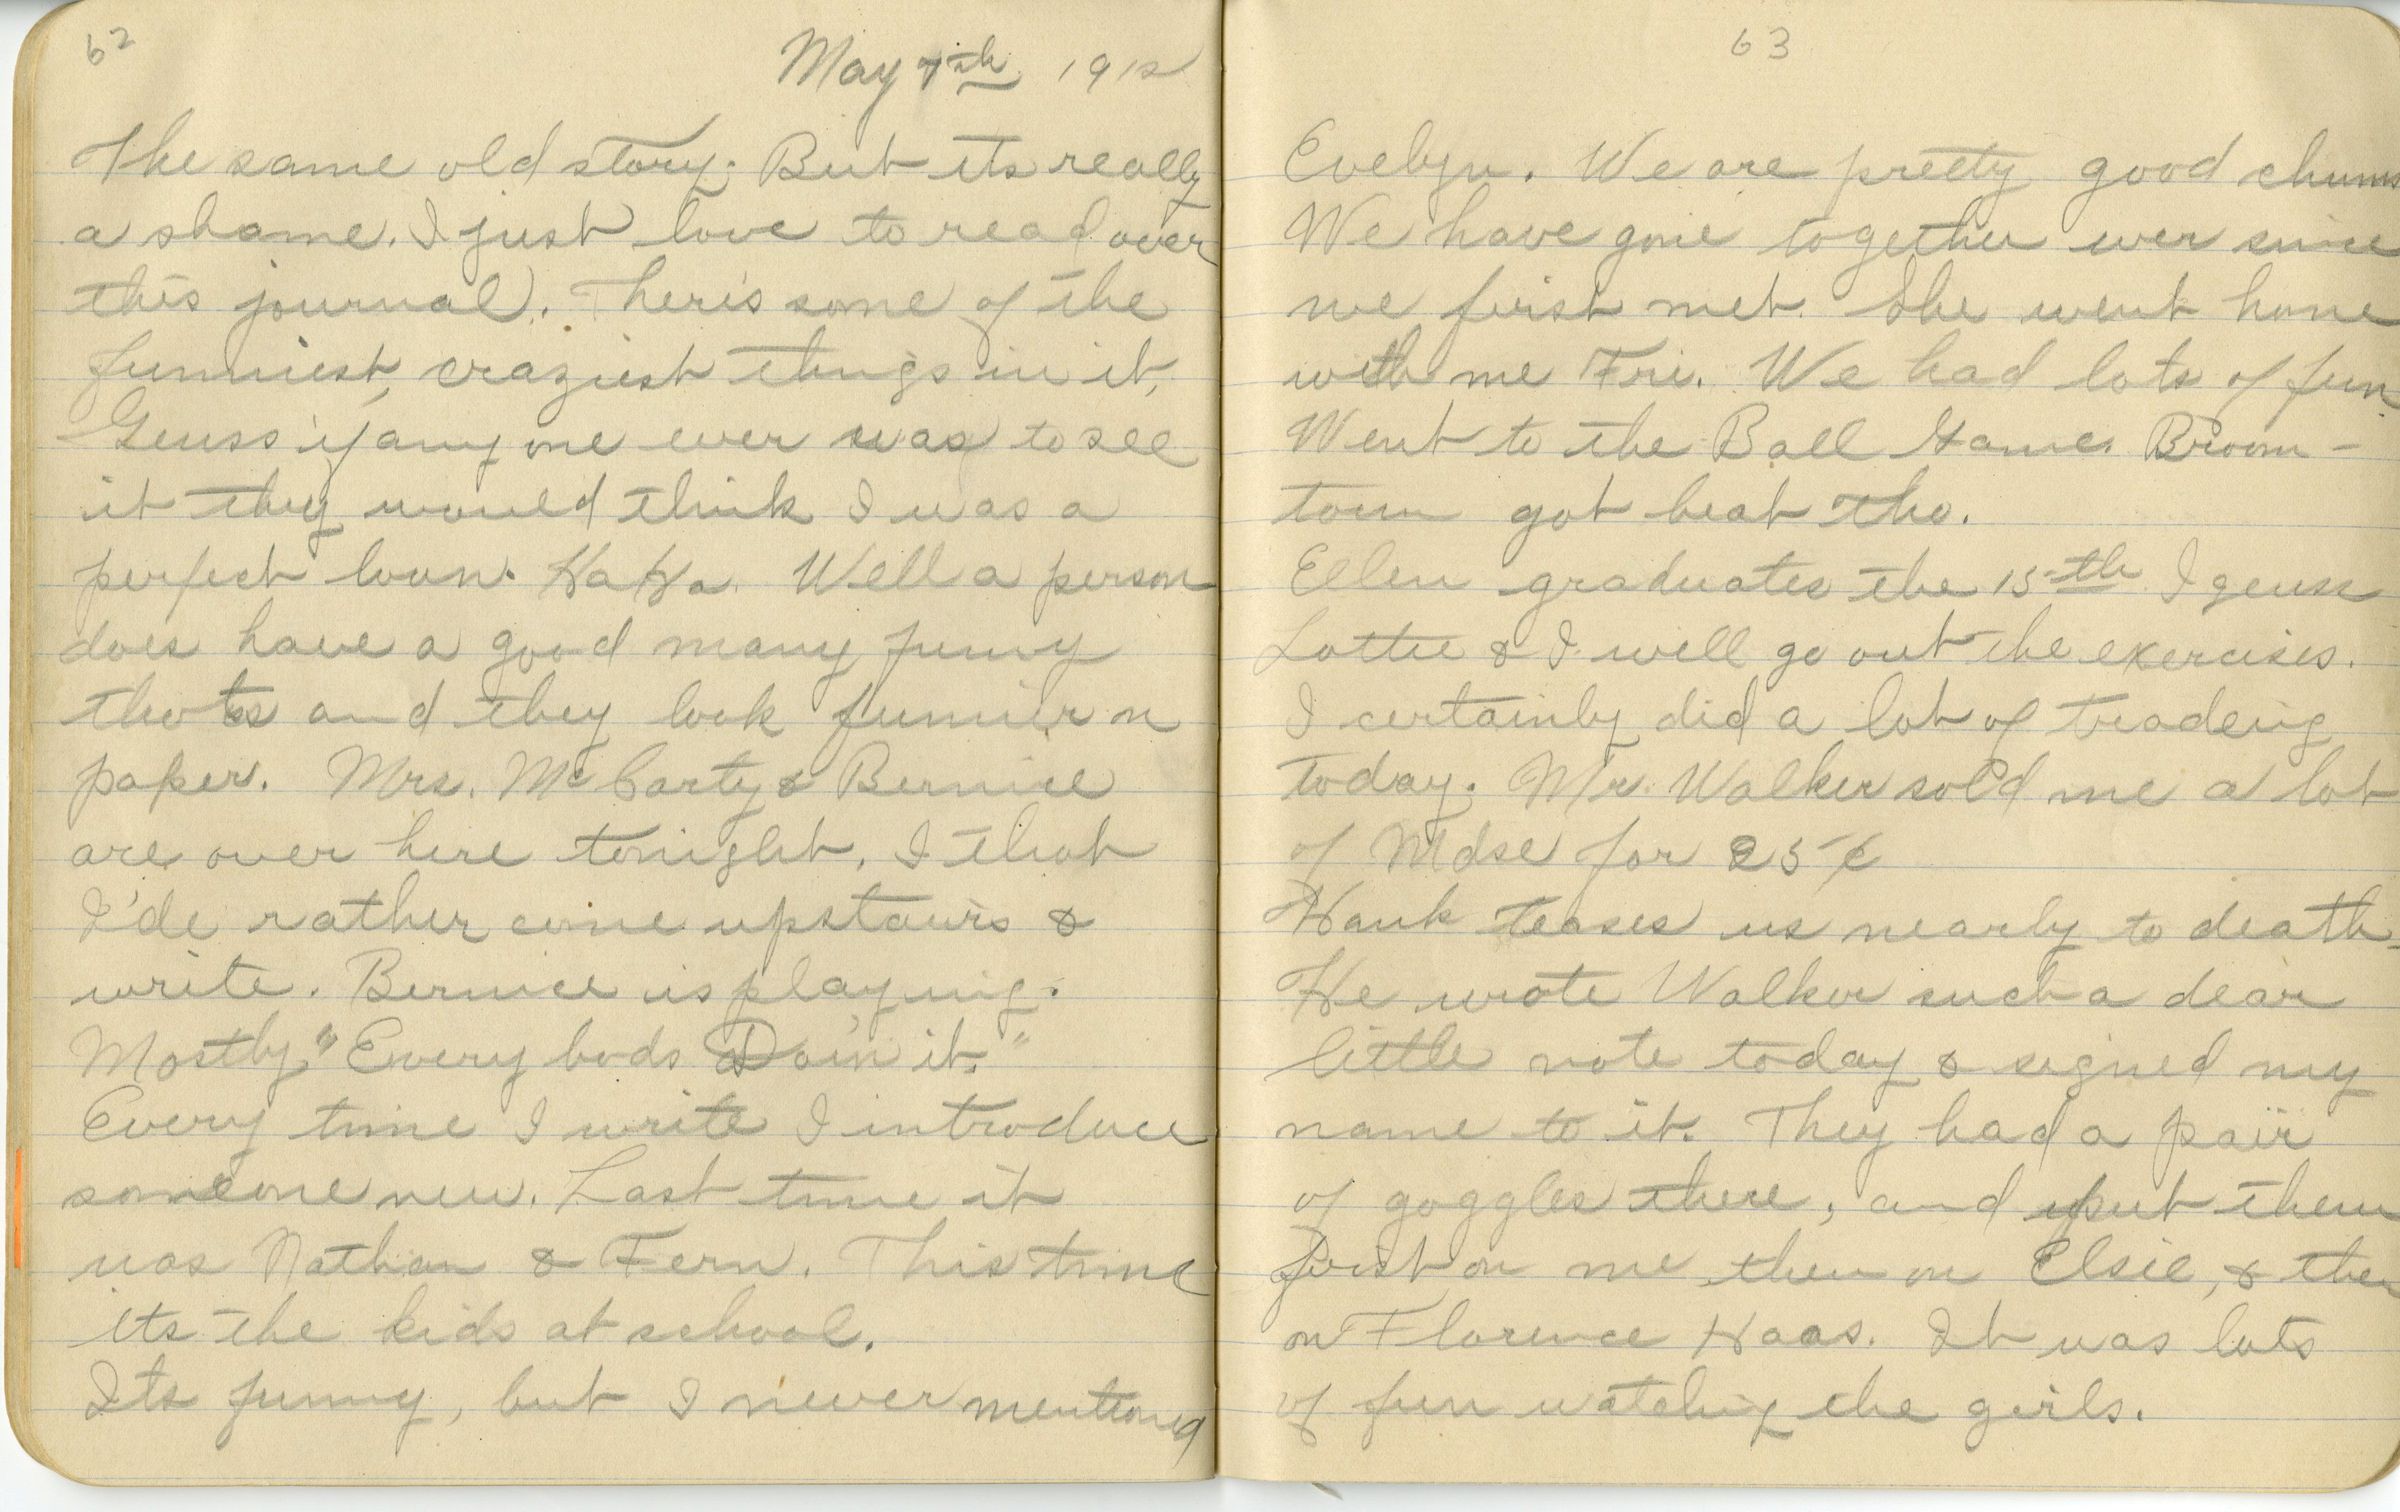 62
May 7th 1912
The same old story. But its really
a shame. I just love to read over
this journal. There's some of the
funniest, craziest things in it.
Geuss if any one ever was to see
it they would think I was a
perfect loon. Ha Ha. Well a person
does have a good many funny
thots and they look funnier on
paper. Mrs. McCarty & Bernice
are over here tonight. I thot
I'de rather come upstairs &
write. Bernice is playing.
Mostly "Every bods Doin it."
Every time I write I introduce
someone new. Last time it
was Nathan & Fern. This time
its the kids at school.
Its funny, but I never mentioned
63
Evelyn. We are pretty good chums
We have gone together ever since
we first met. She went home
with me Fri. We had lots of fun
Went to the Ball Game. Broom-
town got beat tho.
Ellen graduates the 15th I geuss
Lottie & I will go out the exercises.
I certainly did a lot of trading
today. Mr. Walker sold me a lot
of Mdse for 25¢
Hank teases us nearly to death.
He wrote Walker such a dear
little note today & signed my
name to it. They had a pair
of goggles there, and put them
first on me then on Elsie, & then
on Florence Haas. It was lots
of fun watching the girls.